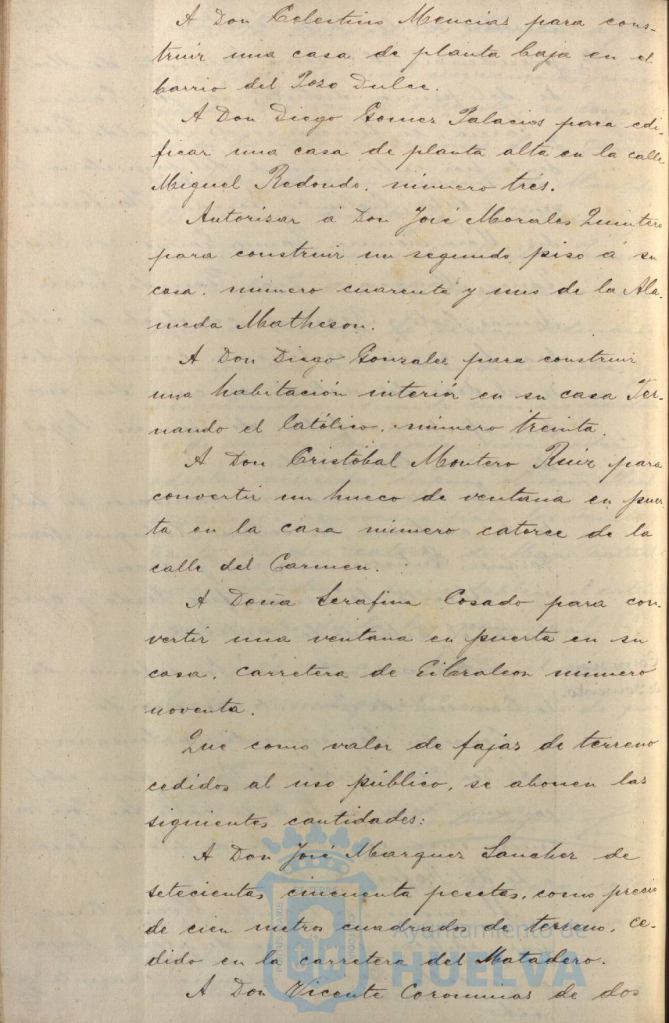 A Don Celestino Mencias para cons-
truir una casa de planta baja en el
barrio del Pozo Dulce.
A Don Diego Gomez Palacios para edi-
ficar una casa de planta alta en la calle
Miguel Redondo, número tres.
Autorizar á Don José Morales Quintero
para construir un segundo piso á su
casa, número cuarenta y uno de la Ala-
meda Matheson.
A Don Diego Gonzalez para construir
una habitación interior en su casa Fer-
nando el Católico, número treinta.
A Don Cristóbal Montero Ruiz para
convertir un hueco de ventana en puer-
ta en la casa número catorce de la
calle del Carmen.
A Doña Serafina Cosado para con
vertir una ventana en puerta en su
casa, carretera de Gibraleon número
noventa.
Que como valor de fajas de terreno
cedidos al uso público, se abonen las
siguientes cantidades:
A Don José Marquez Sanchez de
setecientas cincuenta pesetas, como precio
de cien metros cuadrados de terreno, ce-
dido en la carretera del Matadero.
A Don Vicente Corominas de dos
Ayuntamiento de
HUELVA